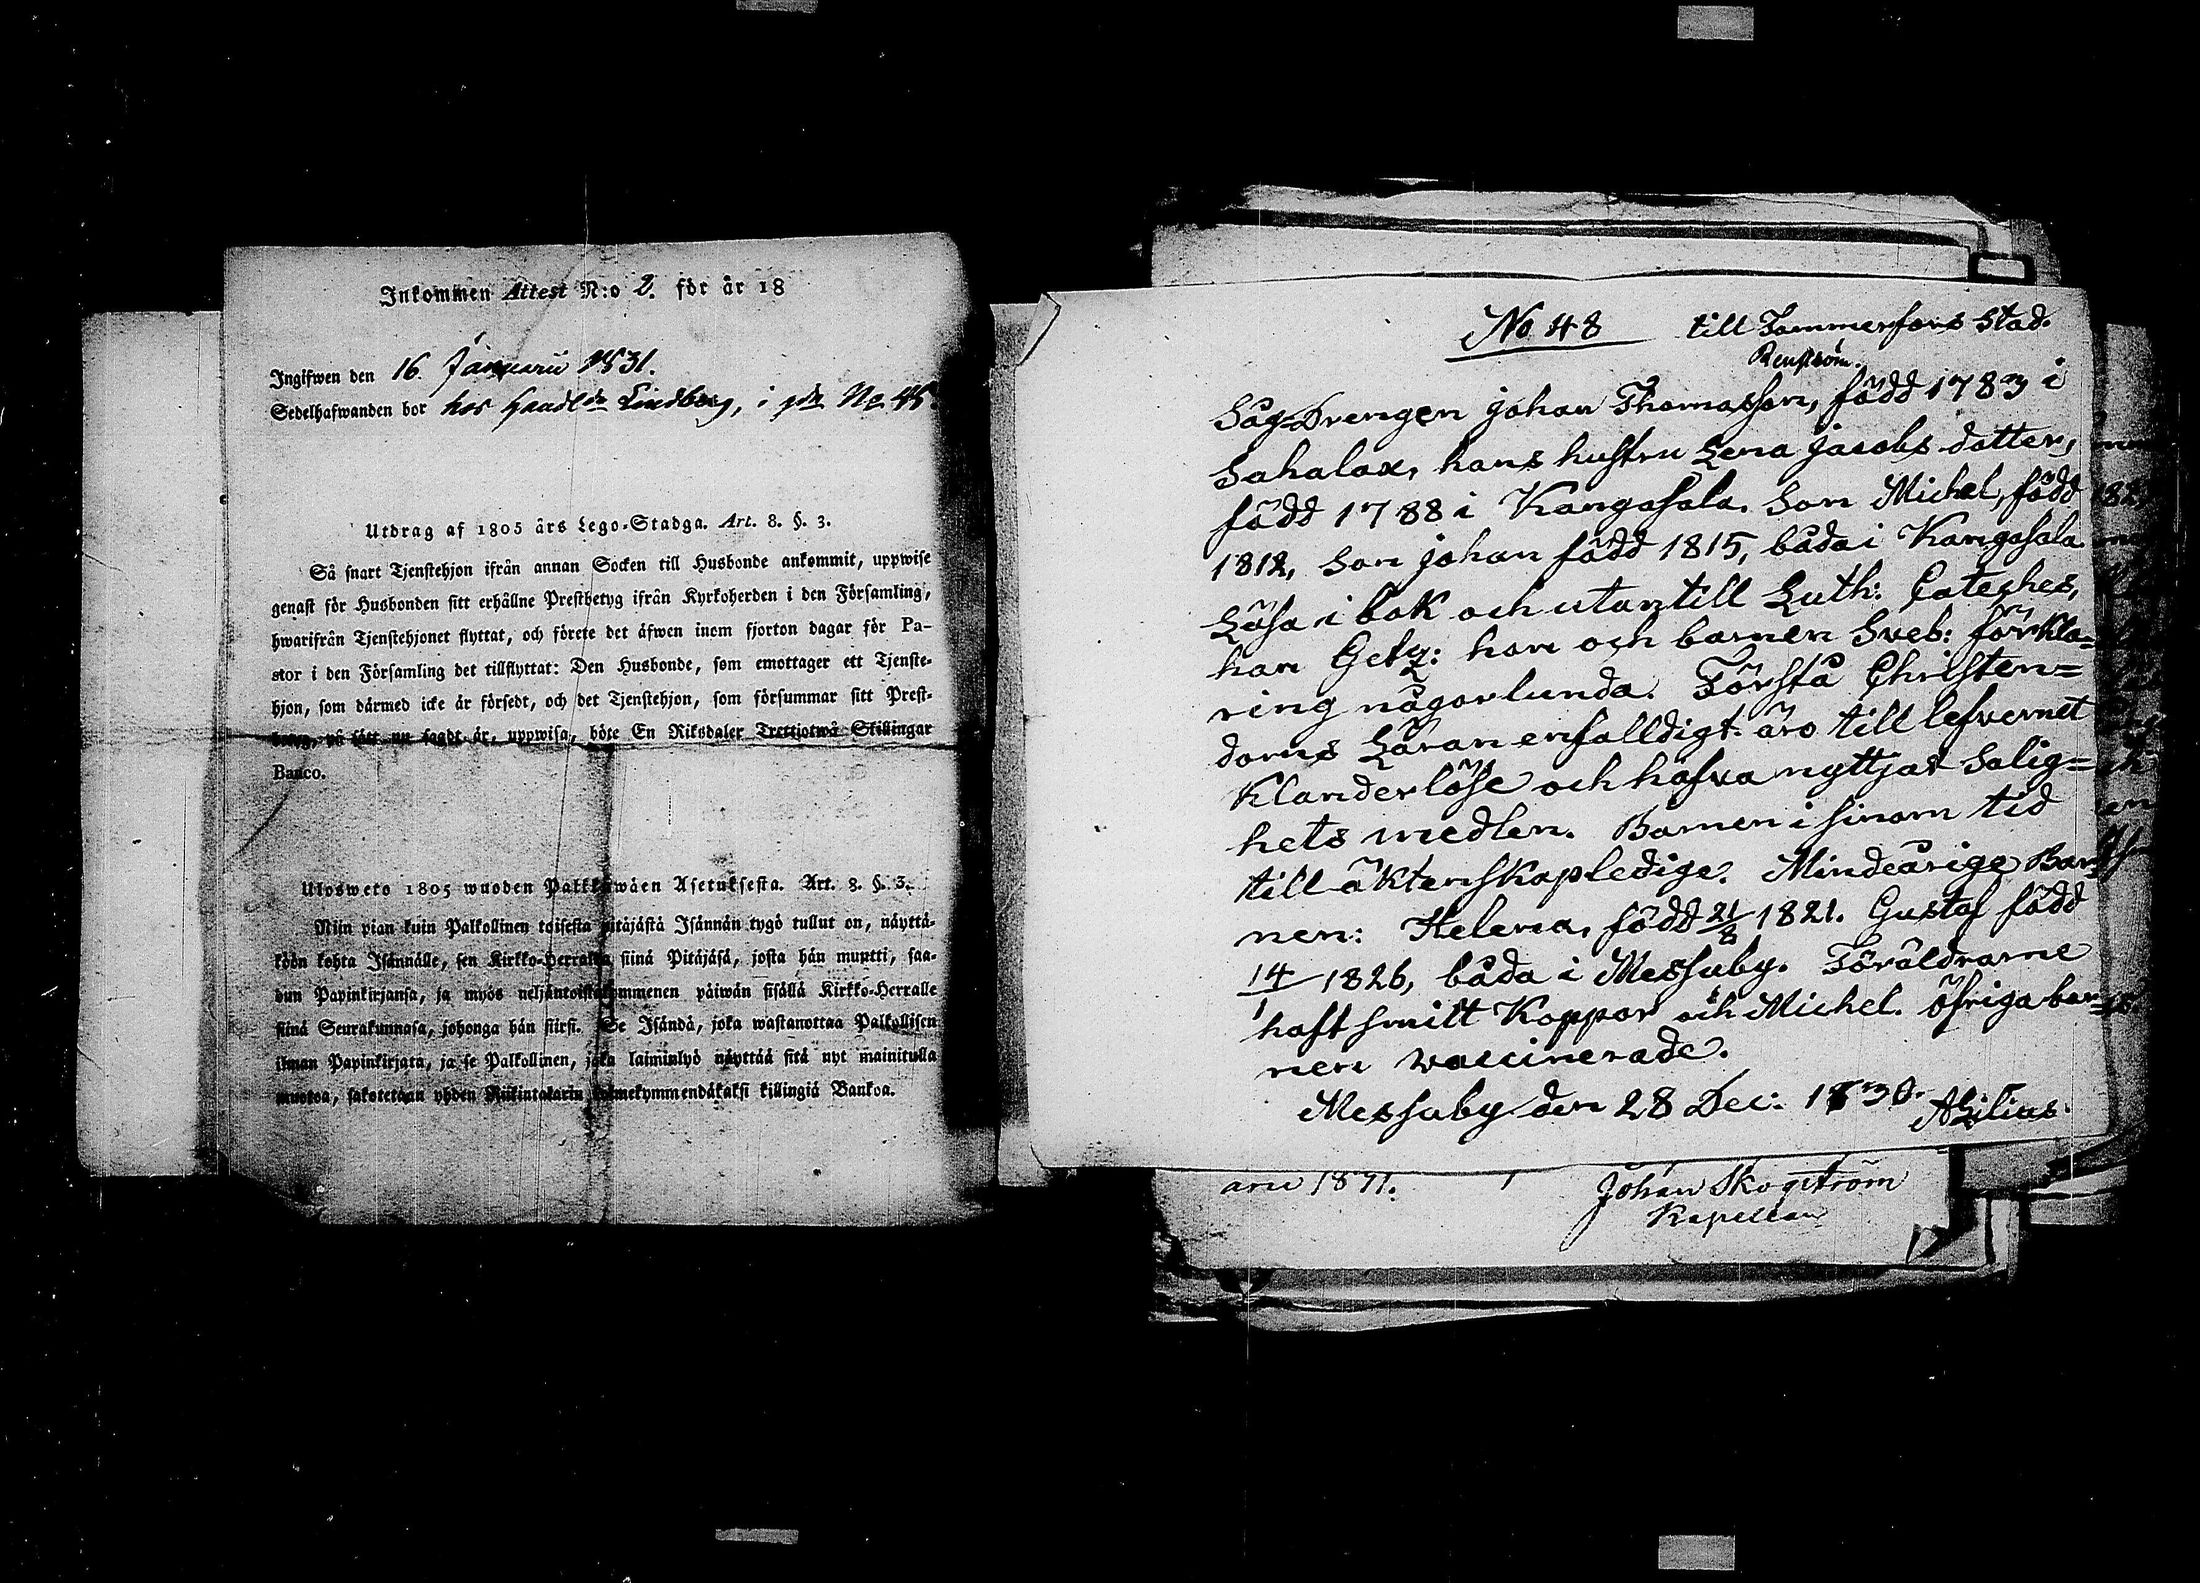 Inkommen Attest N:o 2. för år 18
Ingifwen den 16. Januarii 1831.
Sedelhafwanden bor hos Handl:dn Lindberg, i gdn No 45.
Utdrag af 1805 års Lego-Stadga. Art. 8. §. 3.
Så snart Tjenstehjon ifrån annan Socken till Husbonde ankommit, uppwise
genast för Husbonden sitt erhållne Prestbetyg ifrån Kyrkoherden i den Församling,
hwarifrån Tjenstehjonet flyttat, och förete det äfwen inom fjorton dagar för Pa-
stor i den Församling det tillflyttat: Den Husbonde, som emottager ett Tjenste-
hjon, som därmed icke är försedt, och det Tjenstehjon, som försummar sitt Prest-
betyg, på sätt nu sagdt är, uppwisa, böte En Riksdaler Trettjotwå Skillingar
Banco.
Ulosweto 1805 wuoden Palkkawäen Asetuksesta. Art. 8. §. 3.
Niin pian kuin Palkollinen toisesta pitäjästä Isännän tygö tullut on, näyttä-
köön kohta Isännälle, sen Kirkko-Herralta siinä Pitäjäsä, josta hän muutti, saa-
dun Papinkirjansa, ja myös neljäntoistakymmenen päiwän sisällä Kirkko-Herralle
siinä Seurakunnasa, johonga hän siirsi. Se Isändä, joka wastanottaa Palkollisen
ilman Papinkirjata, ja se Palkollinen, joka laiminlyö näyttää sitä nyt mainitulla
muotoa, sakotetaan yhden Riikintalarin kolmekymmendäkaksi killingiä Bankoa.
No 48 till Tammerfors Stad.
Renström.
Såg-Drengen Johan Thomasson, född 1783 i
Sahalax, hans hustru Lena Jacobs dotter,
född 1788 i Kangasala. Son Michel, född
1812, Son Johan född 1815, båda i Kangasala
Läsa i bok och utantill Luth: Cateches,
han Getz: hon och barnen Sveb: förkla=
ring någorlunda. Förstå Christen=
doms Läran enfalldigt: äro till lefvernet
Klanderlöse och hafva nyttjat Salig=
hets medlen. Barnen i sinom tid
till äktenskap ledige. Mindeårige Bar=
nen: Helena, född 21/8 1821. Gustaf född
14/1 1826, båda i Messuby. Föräldrarne
haft smitt Koppor och Michel. öfriga bar=
nen vaccinerade.
Messuby den 28 Dec: 1830. A Lilius.
arii 1831.
Johan Skogström
Kapellan